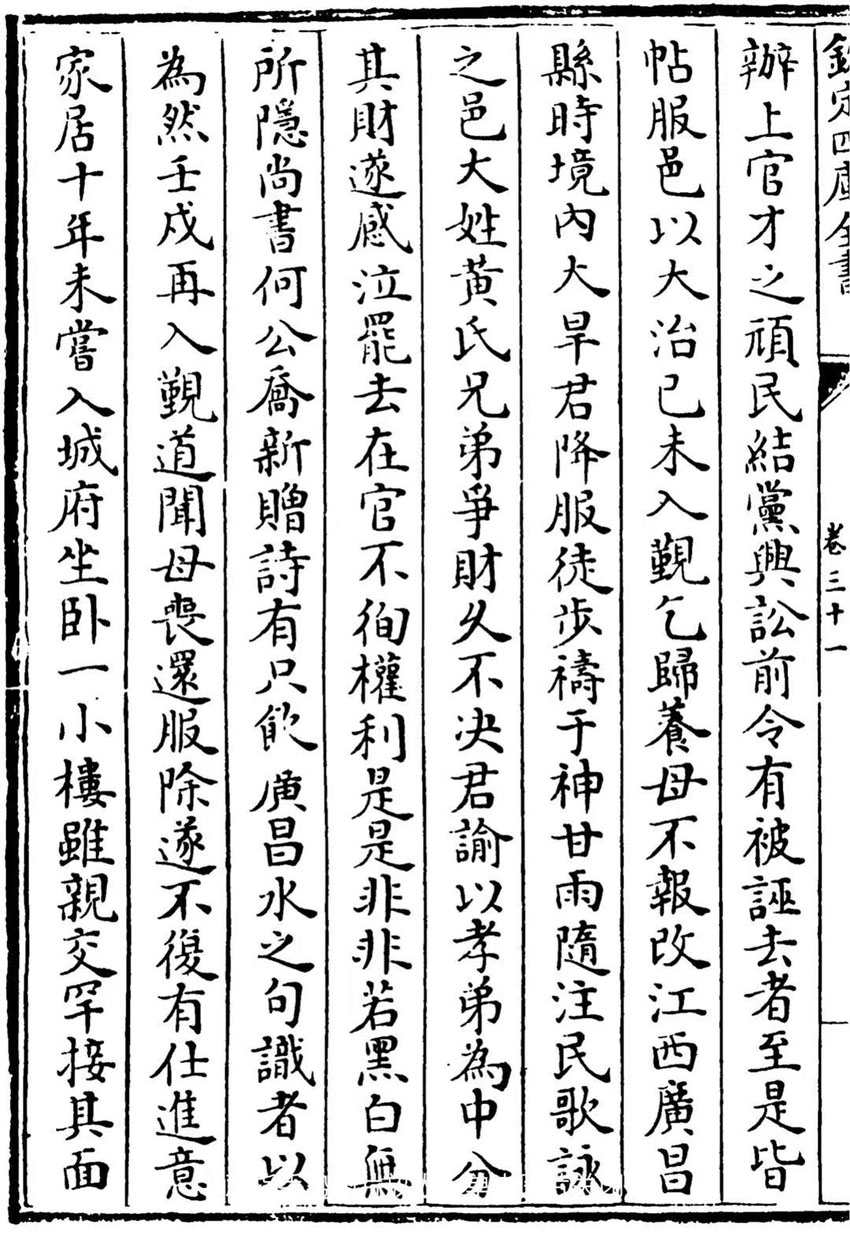 欽定四庫全書
卷三十一
辦上官才之頑民結黨興訟前令有被誣去者至是皆
帖服邑以大治已未入覲乞歸養母不報改江西廣昌
縣時境內大旱君降服徒步禱于神甘雨隨注民歌詠
之邑大姓黃氏兄弟爭財久不决君諭以孝弟為中分
其財遂感泣罷去在官不徇權利是是非非若黑白無
所隱尚書何公喬新贈詩有只飲廣昌水之句識者以
為然壬戍再入覲道聞母喪還服除遂不復有仕進意
家居十年未嘗入城府坐卧一小樓雖親交罕接其面